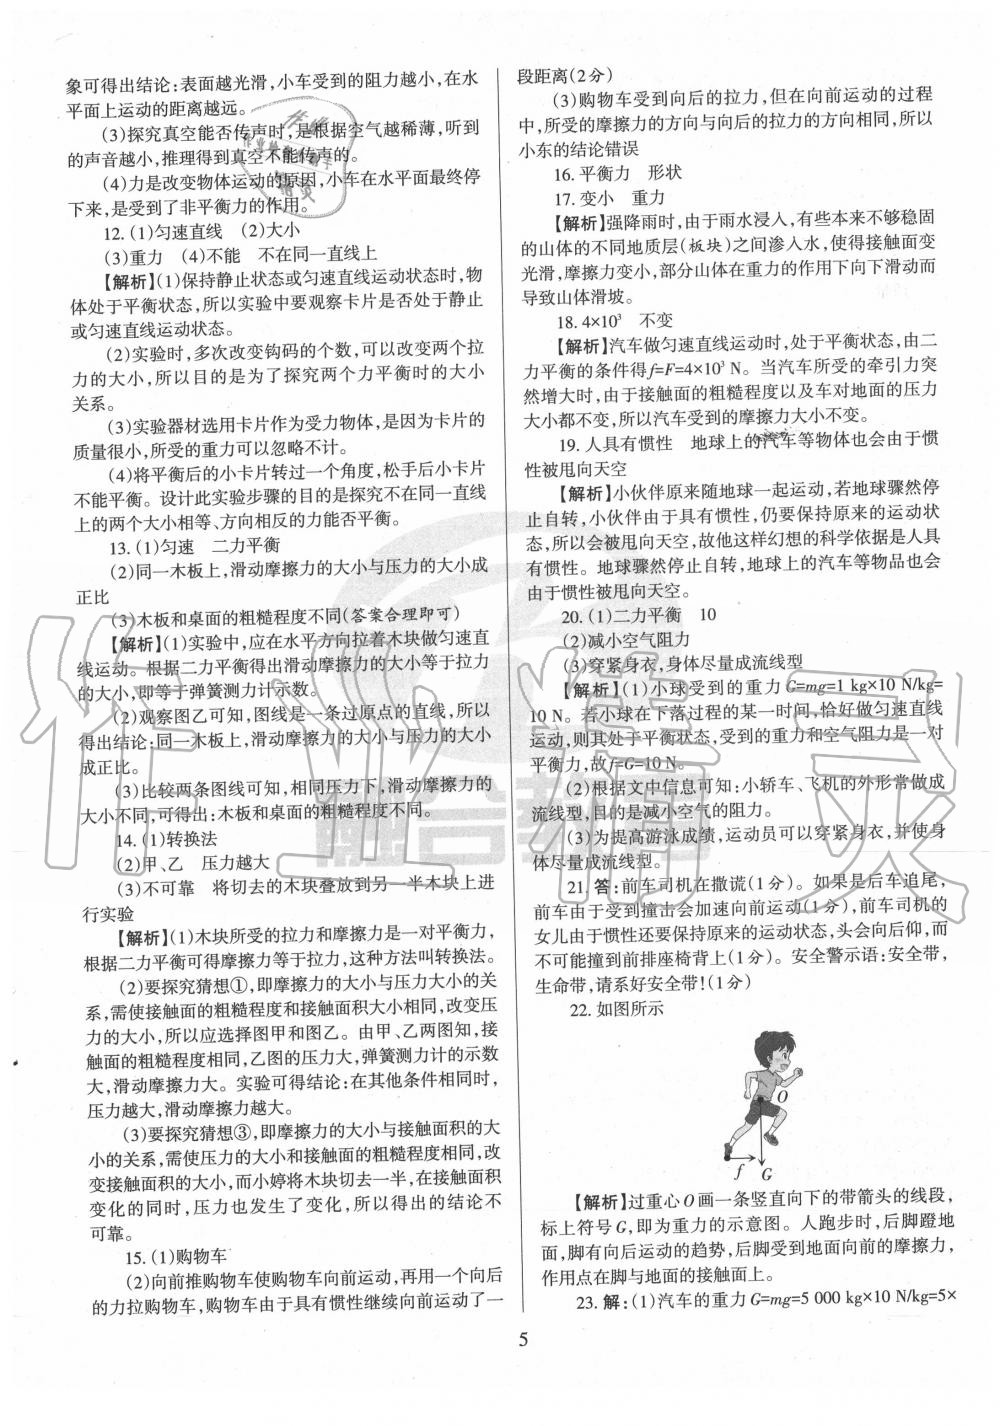 象可得出结论:表面越光滑,小车受到的阻力越小,在水
平面上运动的距离越远。
(3)探究真空能否传声时,是根据空气越稀薄,听到
的声音越小,推理得到真空不能传声的。
(4)力是改变物体运动的原因,小车在水平面最终停
下来,是受到了非平衡力的作用。
12. (1)匀速直线 (2)大小
(3)重力 (4)不能 不在同一直线上
【解析】(1)保持静止状态或匀速直线运动状态时,物
体处于平衡状态,所以实验中要观察卡片是否处于静止
或匀速直线运动状态。
(2)实验时,多次改变钩码的个数,可以改变两个拉
力的大小,所以目的是为了探究两个力平衡时的大小
关系。
(3)实验器材选用卡片作为受力物体,是因为卡片的
质量很小,所受的重力可以忽略不计。
(4)将平衡后的小卡片转过一个角度,松手后小卡片
不能平衡。设计此实验步骤的目的是探究不在同一直线
上的两个大小相等、方向相反的力能否平衡。
13. (1)匀速 二力平衡
(2)同一木板上,滑动摩擦力的大小与压力的大小成
正比
(3)木板和桌面的粗糙程度不同(答案合理即可)
【解析】(1)实验中,应在水平方向拉着木块做匀速直
线运动。根据二力平衡得出滑动摩擦力的大小等于拉力
的大小,即等于弹簧测力计示数。
(2)观察图乙可知,图线是一条过原点的直线,所以
得出结论:同一木板上,滑动摩擦力的大小与压力的大小
成正比。
(3)比较两条图线可知,相同压力下,滑动摩擦力的
大小不同,可得出:木板和桌面的粗糙程度不同。
14. (1)转换法
(2)甲、乙 压力越大
(3)不可靠 将切去的木块叠放到另一半木块上进
行实验
【解析】(1)木块所受的拉力和摩擦力是一对平衡力,
根据二力平衡可得摩擦力等于拉力,这种方法叫转换法。
(2)要探究猜想①,即摩擦力的大小与压力的大小关
系,需使接触面的粗糙程度和接触面积大小相同,改变压
力的大小,所以应选择图甲和图乙。由甲、乙两图知,接
触面的粗糙程度相同,乙图的压力大,弹簧测力计的示数
大,滑动摩擦力大。实验可得结论:在其他条件相同时,
压力越大,滑动摩擦力越大。
(3)要探究猜想③,即摩擦力的大小与接触面积的大
小的关系,需使压力的大小和接触面的粗糙程度相同,改
变接触面积的大小,而小婷将木块切去一半,在接触面积
变化的同时,压力也发生了变化,所以得出的结论不
可靠。
15. (1)购物车
(2)向前推购物车使购物车向前运动,再用一个向后
的力拉购物车,购物车由于具有惯性继续向前运动了一
段距离(2分)
(3)购物车受到向后的拉力,但在向前运动的过程
中,所受的摩擦力的方向与向后的拉力的方向相同,所以
小东的结论错误
16. 平衡力 形状
17. 变小 重力
【解析】强降雨时,由于雨水浸入,有些本来不够稳固
的山体的不同地质层(板块)之间渗入水,使得接触面变
光滑,摩擦力变小,部分山体在重力的作用下向下滑动而
导致山体滑坡。
18. 4×10³ 不变
【解析】汽车做匀速直线运动时,处于平衡状态,由二
力平衡的条件得f=F=4×10³ N。当汽车所受的牵引力突
然增大时,由于接触面的粗糙程度以及车对地面的压力
大小都不变,所以汽车受到的摩擦力大小不变。
19. 人具有惯性 地球上的汽车等物体也会由于惯
性被甩向天空
【解析】小伙伴原来随地球一起运动,若地球骤然停
止自转,小伙伴由于具有惯性,仍要保持原来的运动状
态,所以会被甩向天空,故他这样幻想的科学依据是人具
有惯性。地球骤然停止自转,地球上的汽车等物品也会
由于惯性被甩向天空。
20. (1)二力平衡 10
(2)减小空气阻力
(3)穿紧身衣,身体尽量成流线型
【解析】(1)小球受到的重力G=mg=1 kg×10 N/kg=
10 N。若小球在下落过程的某一时间,恰好做匀速直线
运动,则其处于平衡状态,受到的重力和空气阻力是一对
平衡力,故f=G=10 N。
(2)根据文中信息可知:小轿车、飞机的外形常做成
流线型,目的是减小空气的阻力。
(3)为提高游泳成绩,运动员可以穿紧身衣,并使身
体尽量成流线型。
21. 答:前车司机在撒谎(1分)。如果是后车追尾,
前车由于受到撞击会加速向前运动(1分),前车司机的
女儿由于惯性还要保持原来的运动状态,头会向后仰,而
不可能撞到前排座椅背上(1分)。安全警示语:安全带,
生命带,请系好安全带!(1分)
22. 如图所示
O
f G
【解析】过重心O画一条竖直向下的带箭头的线段,
标上符号G,即为重力的示意图。人跑步时,后脚蹬地
面,脚有向后运动的趋势,后脚受到地面向前的摩擦力,
作用点在脚与地面的接触面上。
23. 解:(1)汽车的重力G=mg=5 000 kg×10 N/kg=5×
5
作业精灵